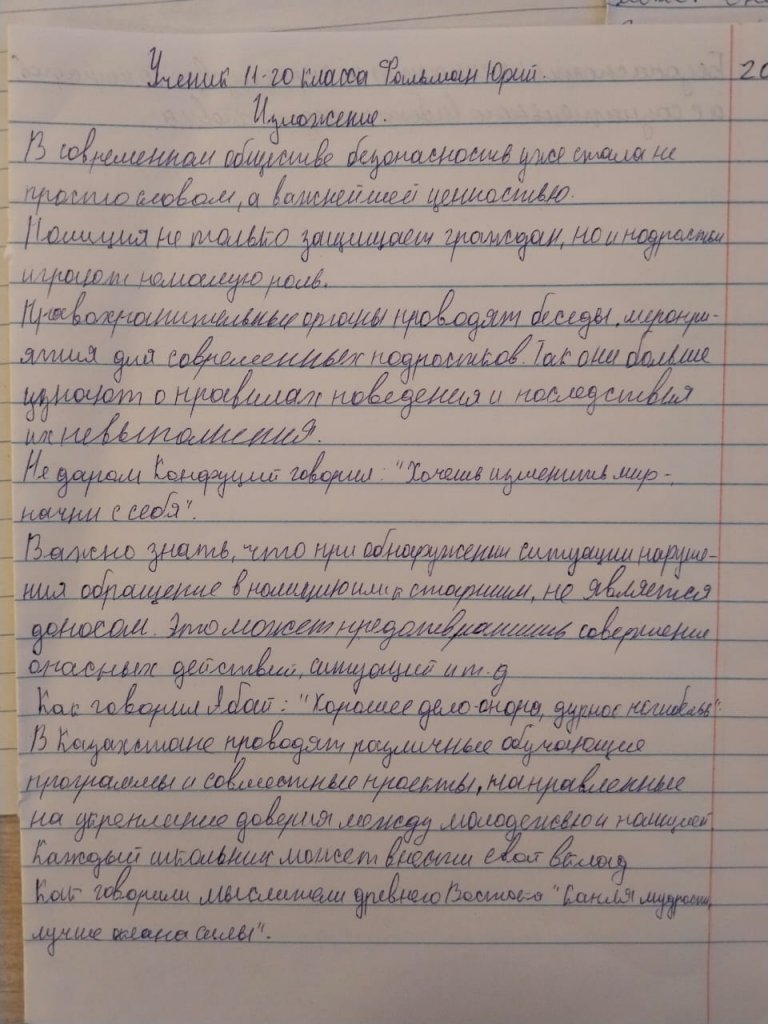 Ученик 11-го класса Фольман Юрий.
20
Изложение.
В современном обществе безопасность уже стала не
просто словом, а важнейшей ценностью.
Полиция не только защищает граждан, но и подростки
играют немалую роль.
Правохранительные органы проводят беседы, меропри-
ятия для современных подростков. Так они больше
узнают о правилах поведения и последствия
их невыполнения.
Не даром Конфуций говорил: "Хочешь изменить мир -
начни с себя".
Важно знать, что при обнаружении ситуации наруше-
ния обращение в полицию или к старшим, не является
доносом. Это может предотвратить совершение
опасных действий, ситуаций и т.д
Как говорил Абай: "Хорошее дело-опора, дурное погибель".
В Казахстане проводят различные обучающие
программы и совместные проекты, направленные
на укрепление доверия между молодежью и полицией
Каждый школьник может внести свой вклад
Как говорили мыслители древнего Востока "Капля мудрости,
лучше океана силы".